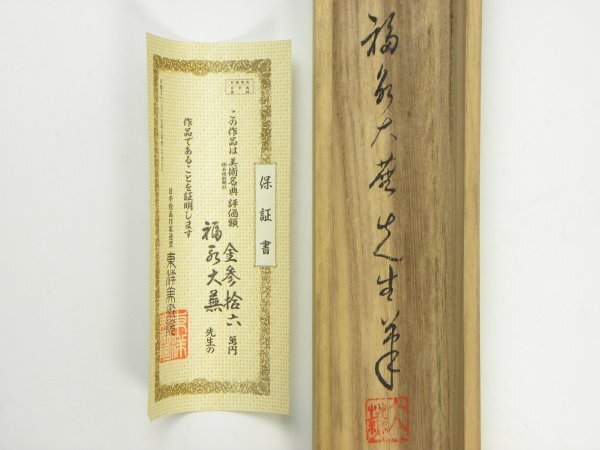 福永大蕪先生筆
保証書
この作品は美術名典評価額
金参拾六萬円
福永大蕪先生の
作品であることを証明します
東洋美術院